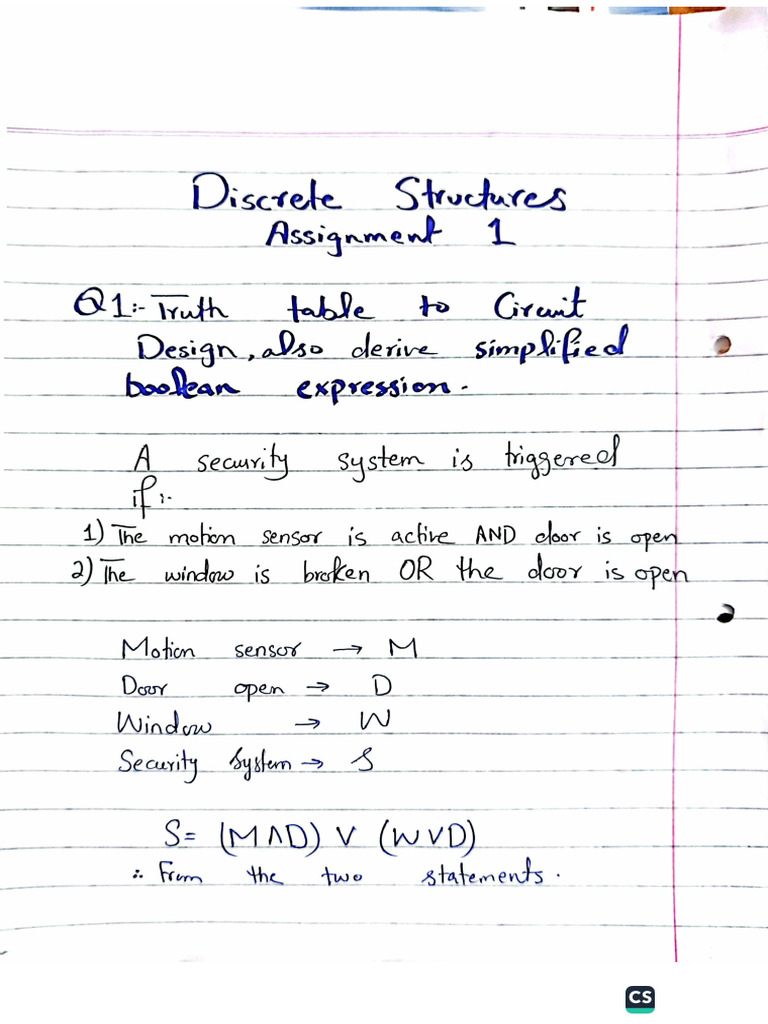 Discrete Structures
Assignment 1
Q1:- Truth table to Circuit
Design, also derive simplified
boolean expression.
A security system is triggered
if:-
1) The motion sensor is active AND door is open
2) The window is broken OR the door is open
Motion sensor → M
Door open → D
Window → W
Security System → S
S= (M ∧ D) ∨ (W ∨ D)
∴ From the two statements.
CS